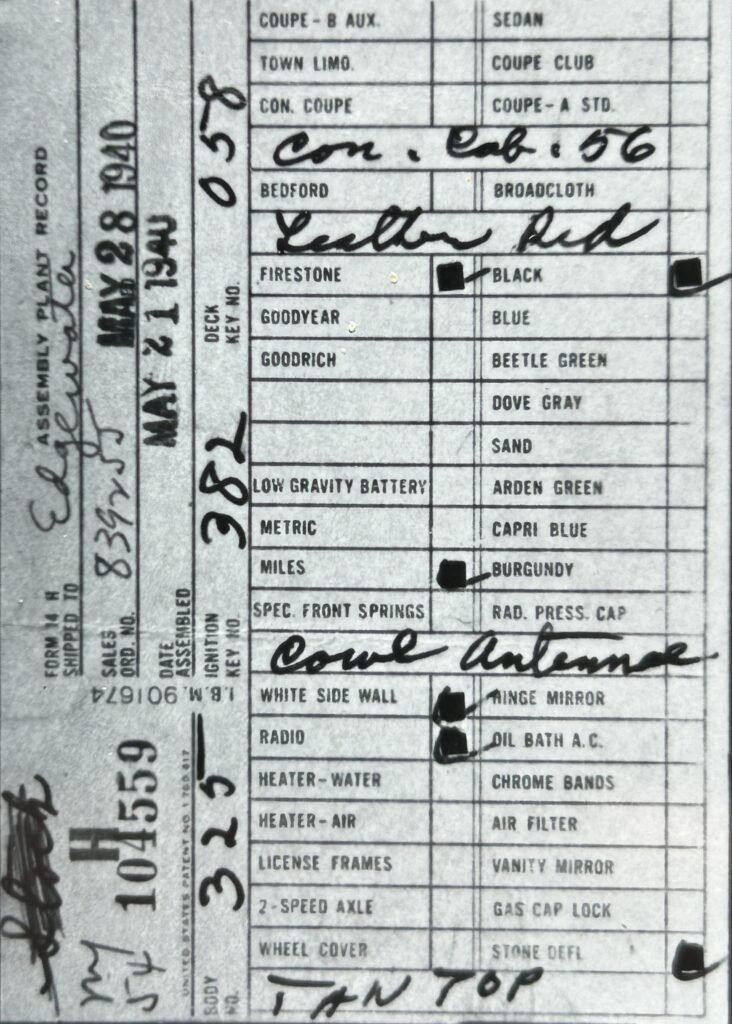 COUPE - B AUX. SEDAN
TOWN LIMO. COUPE CLUB
CON. COUPE COUPE - A STD.
Con. Cab. 56
BEDFORD BROADCLOTH
Leather Red
FIRESTONE BLACK
GOODYEAR BLUE
GOODRICH BEETLE GREEN
DOVE GRAY
SAND
LOW GRAVITY BATTERY ARDEN GREEN
METRIC CAPRI BLUE
MILES BURGUNDY
SPEC. FRONT SPRINGS RAD. PRESS. CAP
Cowl Antennae
WHITE SIDE WALL HINGE MIRROR
RADIO OIL BATH A.C.
HEATER-WATER CHROME BANDS
HEATER-AIR AIR FILTER
LICENSE FRAMES VANITY MIRROR
2-SPEED AXLE GAS CAP LOCK
WHEEL COVER STONE DEFL
TAN TOP
FORM 14 H ASSEMBLY PLANT RECORD
SHIPPED TO Edgewater
SALES ORD. NO. 839255 MAY 28 1940
DATE ASSEMBLED MAY 21 1940
IGNITION KEY NO. 382 DECK KEY NO. 058
I.B.M. 901674
H
104559
NY
54
UNITED STATES PATENT NO. 1 780 817
BODY NO. 325